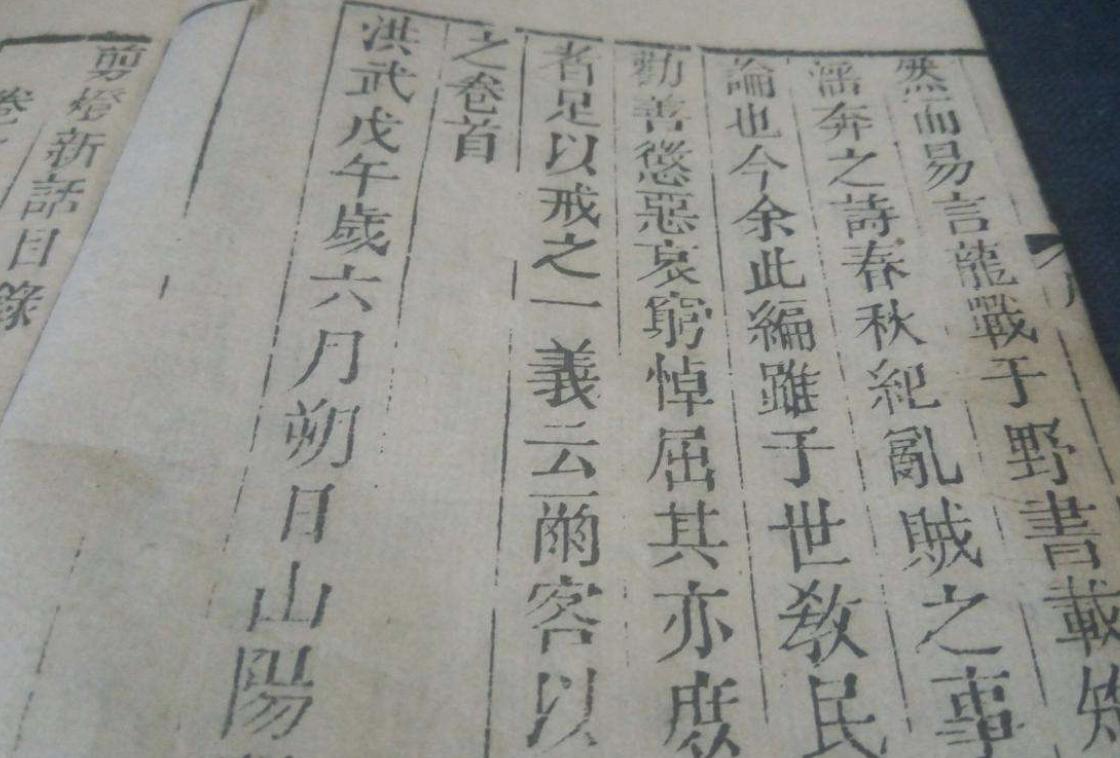 然而易言龍戰于野書載
滛奔之詩春秋紀亂賊之事
論也今余此編雖于世敎民
勸善懲惡哀窮悼屈其亦庶
者足以戒之一義云爾客以
之卷首
洪武戊午歲六月朔日山陽
剪燈新話目錄
卷